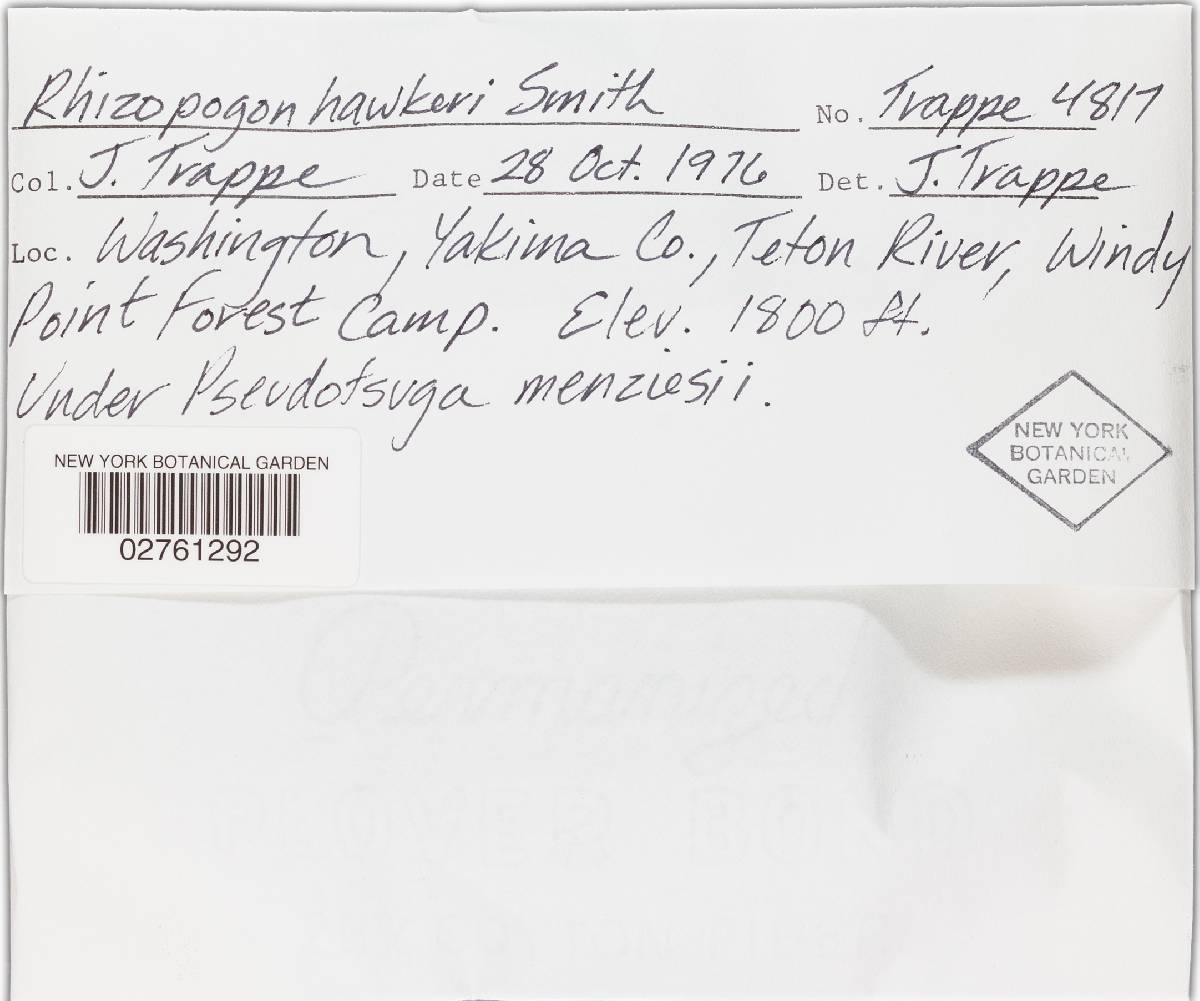 Rhizopogon hawkeri Smith No. Trappe 4817
Col. J. Trappe Date 28 Oct. 1976 Det. J. Trappe
Loc. Washington, Yakima Co., Teton River, Windy
Point Forest Camp. Elev. 1800 ft.
Under Pseudotsuga menziesii.
NEW YORK
BOTANICAL
GARDEN
NEW YORK BOTANICAL GARDEN
02761292